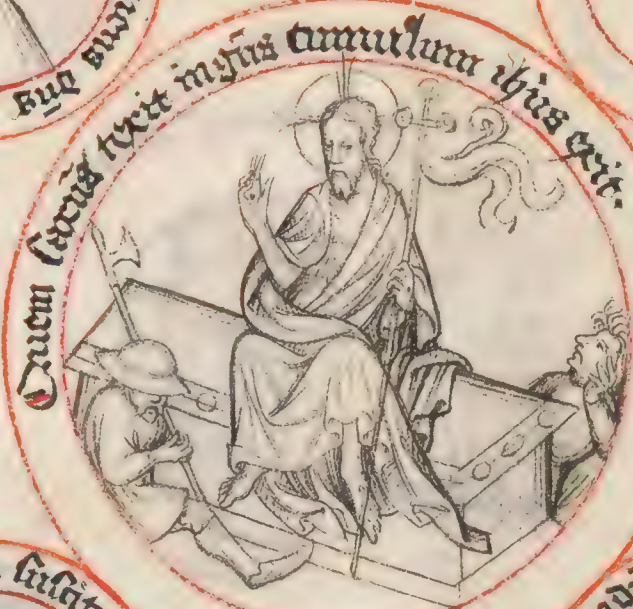 Quem saxūs texit ingēns tumulum ihūs exit.